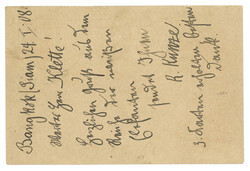 Bangkok (Siam) 24.I.08
Werter Herr "Klette"!
Herzlichen Gruß aus dem
Reiche der weißen
Elefanten
sendet Ihnen
R. Kunze
3 Karten erhalten besten
Dank